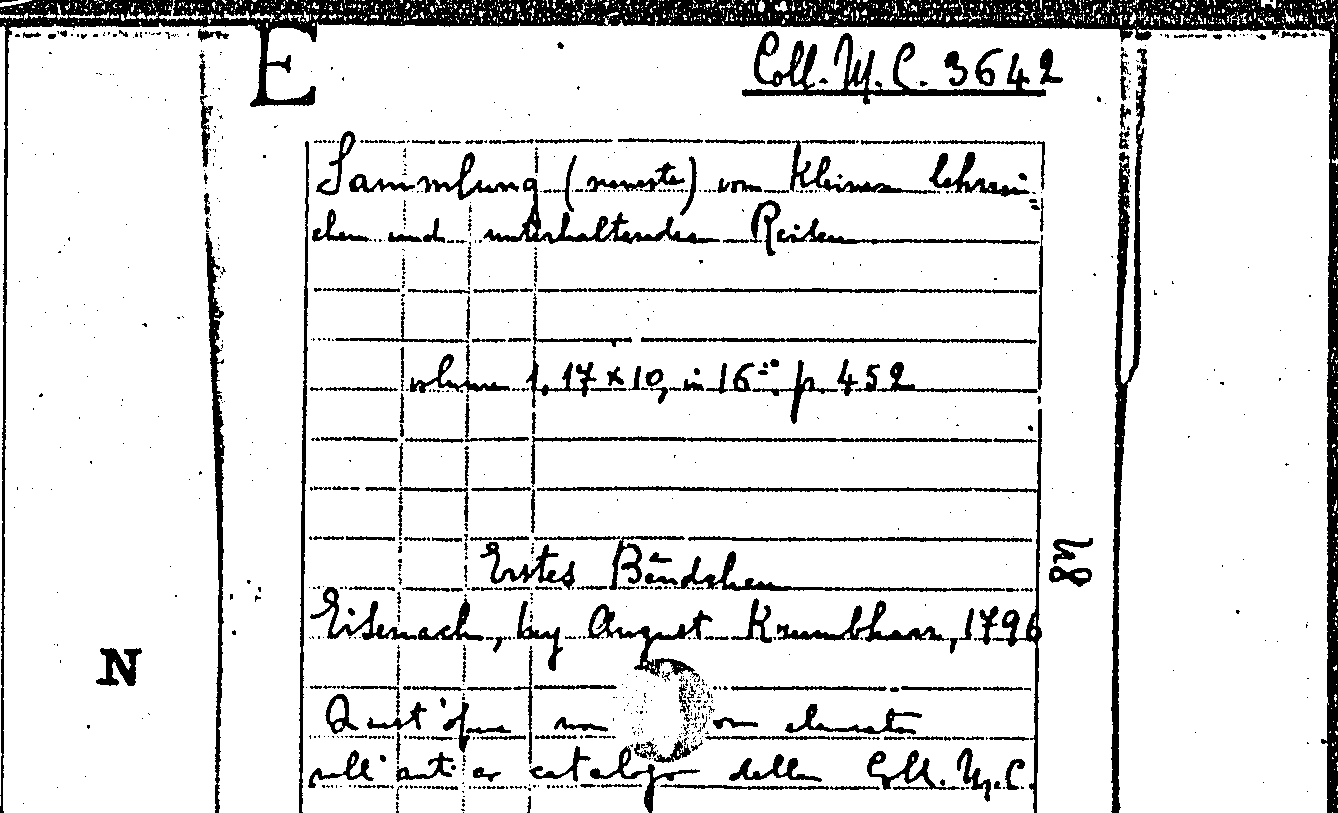 E
Coll. M. C. 3642
Sammlung (neueste) von kleinen lehrrei=
chen und unterhaltenden Reisen
volume 1, 17 x 10, in 16º: p. 452
Erstes Bändchen
Eisenach, bey August Krumbhaar, 1796
N
Quest'opera non elencata
nell' antico catalogo della Coll. M. C.